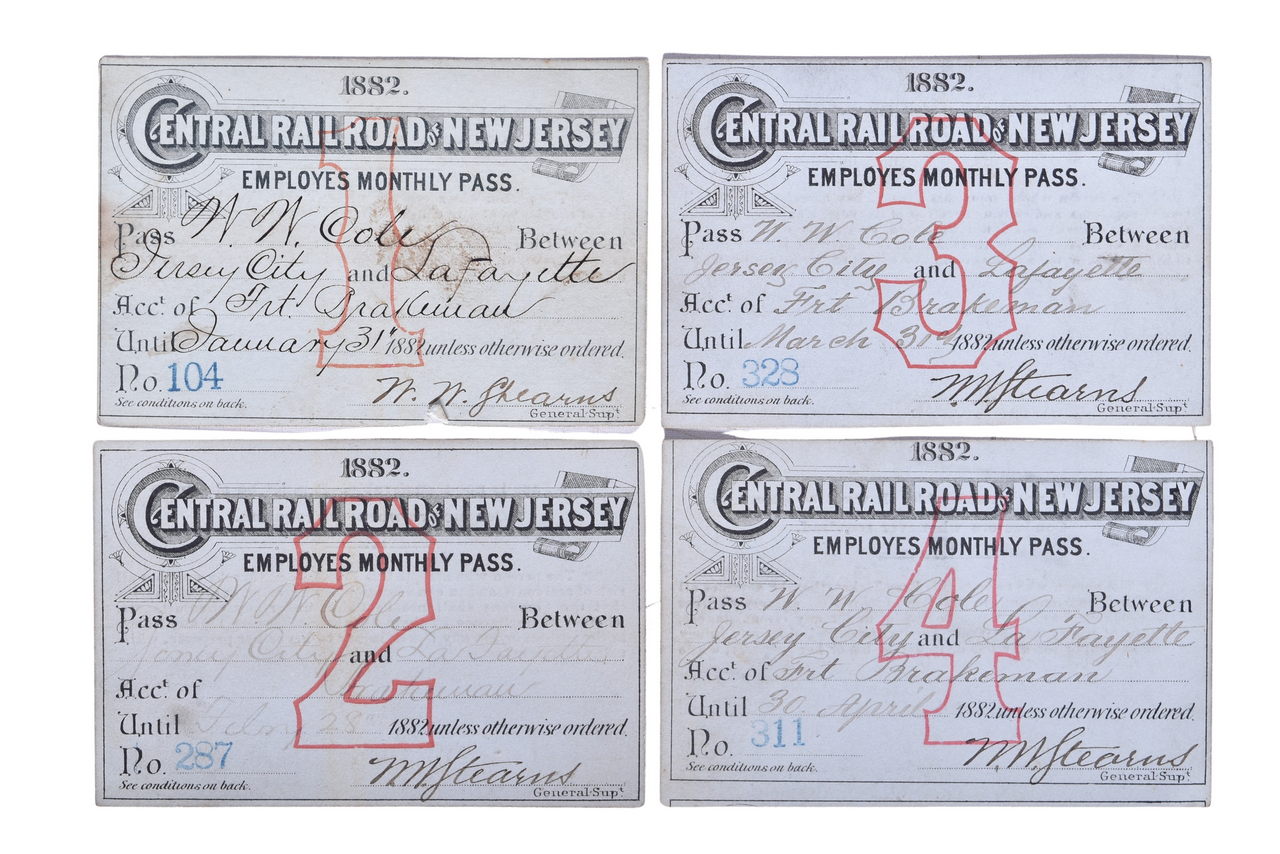 1882.
CENTRAL RAIL ROAD of NEW JERSEY
EMPLOYES MONTHLY PASS.
Pass W. W. Cole Between
Jersey City and LaFayette
Acct. of Frt. Brakeman
Until January 31" 1882 unless otherwise ordered.
No. 104
See conditions on back.
W. W. Stearns
General Supt.
1
1882.
CENTRAL RAIL ROAD of NEW JERSEY
EMPLOYES MONTHLY PASS.
Pass W. W. Cole Between
Jersey City and Lafayette
Acct. of Frt Brakeman
Until March 31st 1882 unless otherwise ordered.
No. 328
See conditions on back.
W W Stearns
General Supt.
3
1882.
CENTRAL RAIL ROAD of NEW JERSEY
EMPLOYES MONTHLY PASS.
Pass W. W. Cole Between
Jersey City and La Fayette
Acct. of Brakeman
Until 28" 1882 unless otherwise ordered.
No. 287
See conditions on back.
W W Stearns
General Supt.
2
1882.
CENTRAL RAIL ROAD of NEW JERSEY
EMPLOYES MONTHLY PASS.
Pass W. W. Cole Between
Jersey City and La Fayette
Acct. of Frt Brakeman
Until 30 April 1882 unless otherwise ordered.
No. 311
See conditions on back.
W W Stearns
General Supt.
4